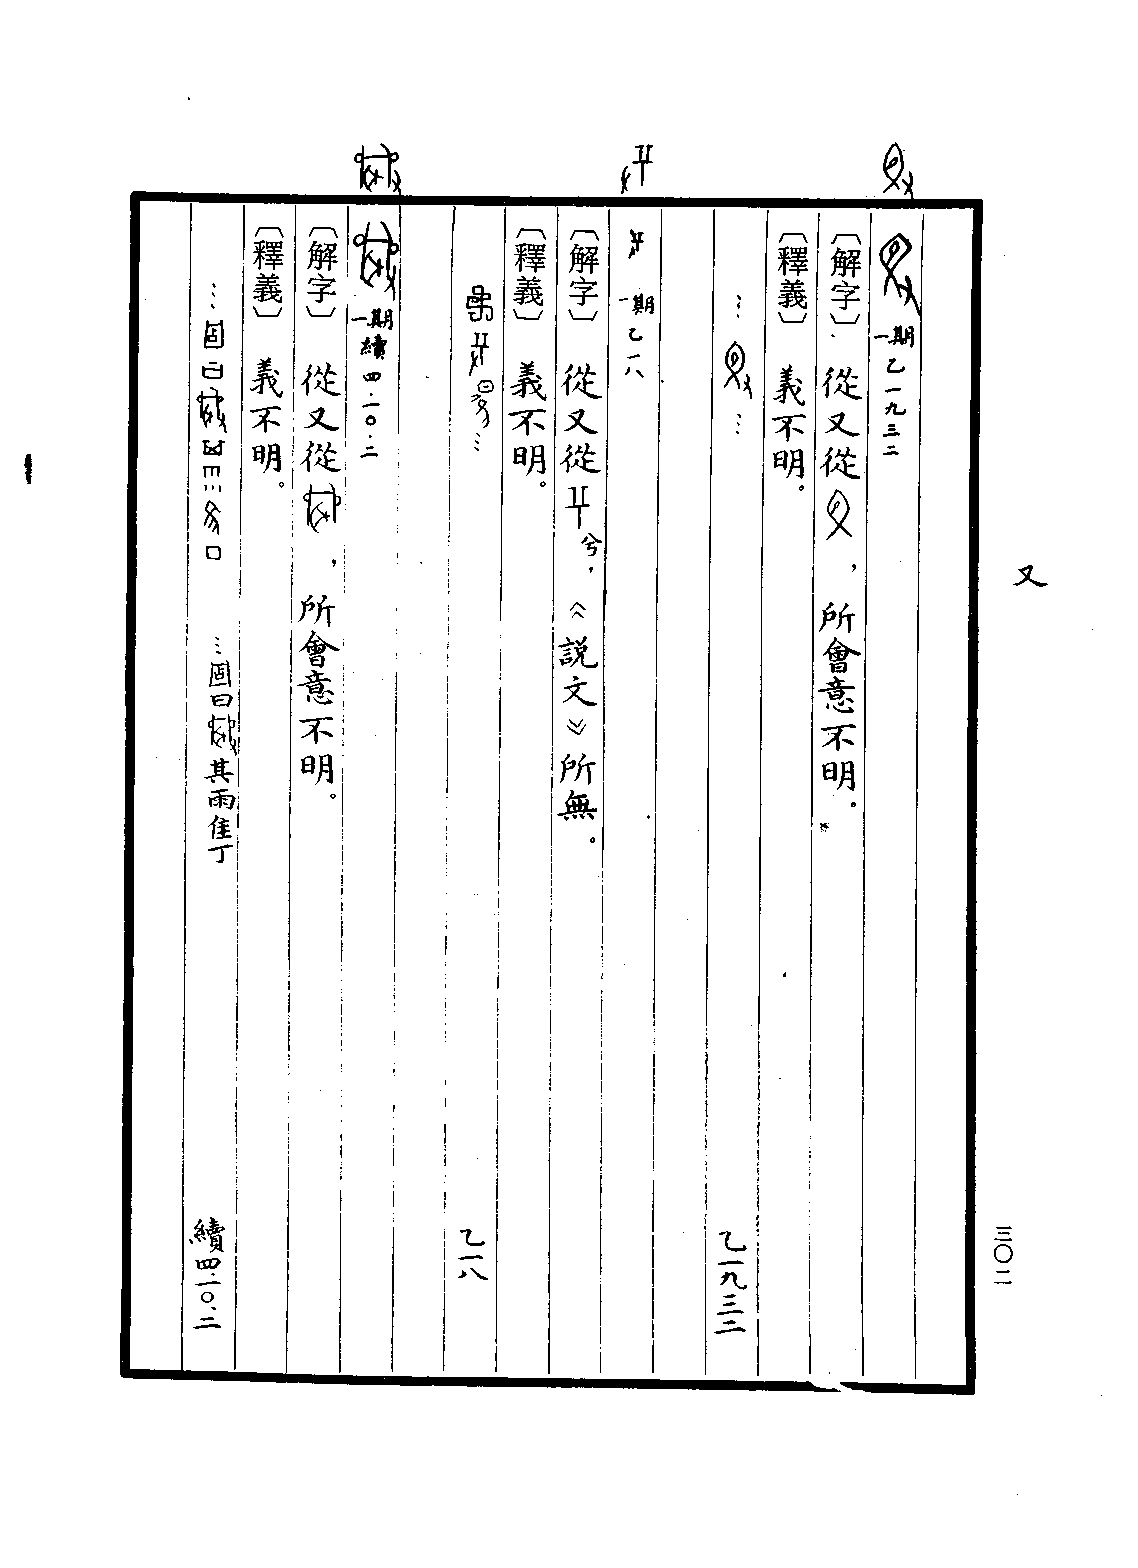 又
三〇二
一期 乙一九三二
〔解字〕 從又從，所會意不明。
〔釋義〕 義不明。
… … 乙一九三二
一期 乙一八
〔解字〕 從又從兮，《說文》所無。
〔釋義〕 義不明。
… 乙一八
一期 續四·一〇·二
〔解字〕 從又從，所會意不明。
〔釋義〕 義不明。
… …曰其雨隹丁 續四·一〇·二